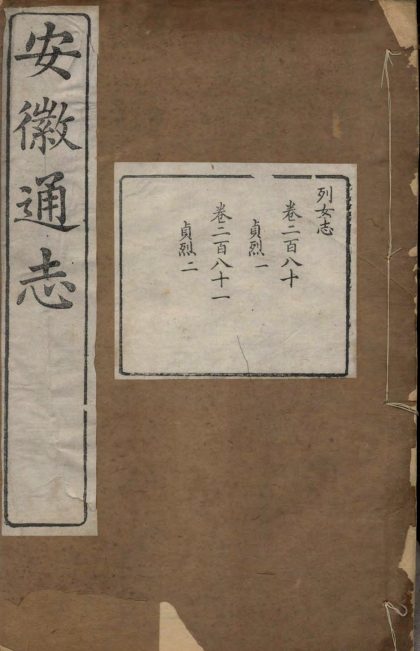 安徽通志
列女志
卷二百八十
貞烈一
卷二百八十一
貞烈二